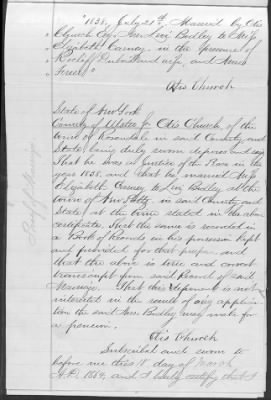 "1838. July 21st. Married by Otis
Church Esq. Mr. Levi Budley to Miss
Elizabeth Carney in the presence of
Roeliff DuBois and wife, and Amos
Freer"
Otis Church
State of New York
County of Ulster ss Otis Church, of the
town of Rosendale in said County and
State, being duly sworn deposes and says
That he was a Justice of the Peace in the
year 1838. and that he married Miss
Elizabeth Carney to Levi Budley at the
town of New Paltz in said County and
State, at the time stated in the above
certificate, that the same is recorded in
a Book of Records in his possession kept
and provided for that purpose, and
that the above is true and correct
transcript from said Record of said
Marriage. That this deponent is not
interested in the result of any applica-
tion the said Mrs. Budley may make for
a pension.
Otis Church
Subscribed and sworn to
before me this 18 day of March
A.D. 1864, and I hereby certify that I
Proof of Marriage